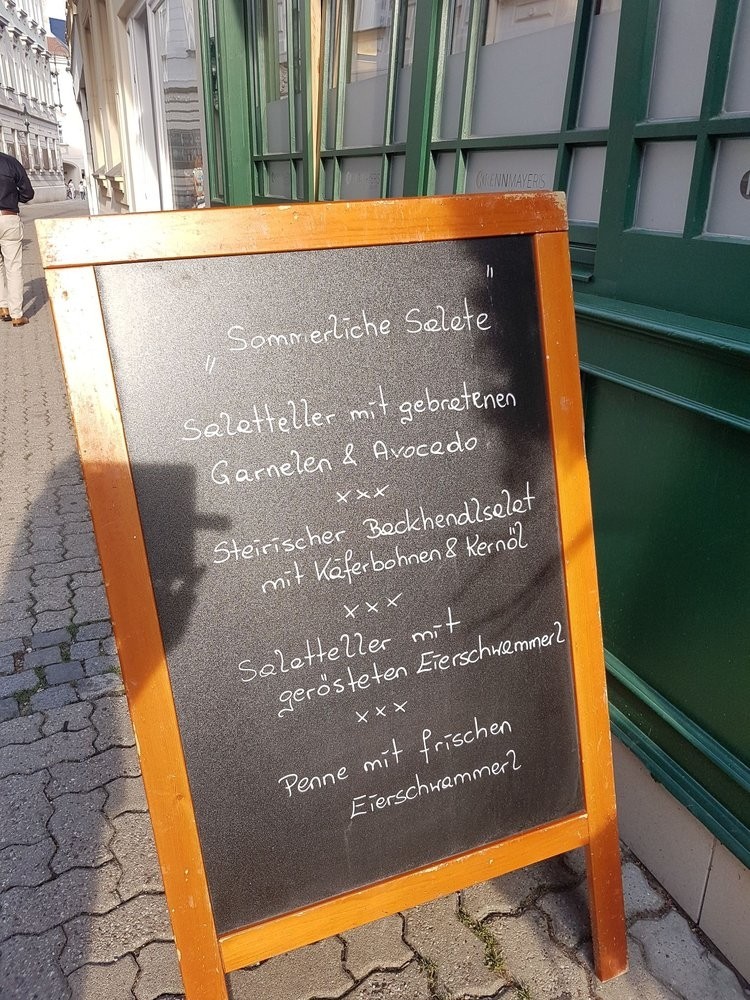 „Sommerliche Salate"
Salatteller mit gebratenen
Garnelen & Avocado
xxx
Steirischer Backhendlsalat
mit Käferbohnen & Kernöl
xxx
Salatteller mit
gerösteten Eierschwammerl
xxx
Penne mit frischen
Eierschwammerl